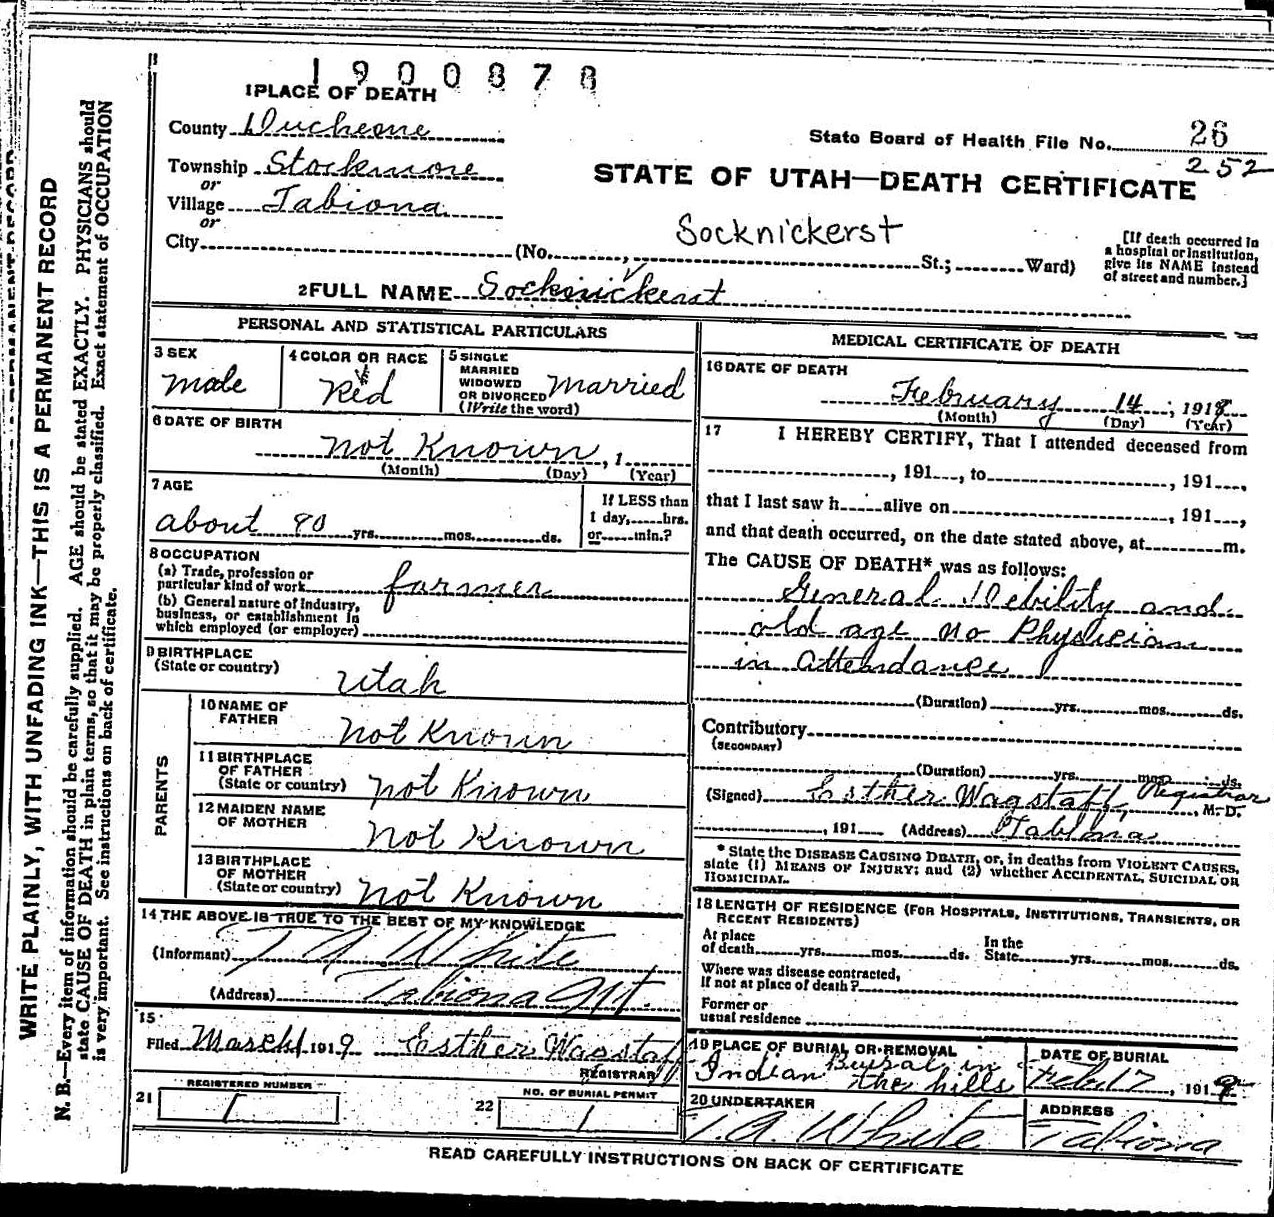 1900878
1 PLACE OF DEATH
County Duchesne
State Board of Health File No. 26
252
Township Stockmore
or
STATE OF UTAH—DEATH CERTIFICATE
Village Tabiona
or
Socknickerst
City (No. , St.; Ward)
[If death occurred in a hospital or institution, give its NAME instead of street and number.]
2 FULL NAME Socknickerst
PERSONAL AND STATISTICAL PARTICULARS
3 SEX
male
4 COLOR OR RACE
Red
5 SINGLE
MARRIED
WIDOWED
OR DIVORCED
(Write the word)
Married
6 DATE OF BIRTH
not Known, 1
(Month) (Day) (Year)
7 AGE
about 90 yrs. mos. ds.
If LESS than
1 day, hrs.
or min.?
8 OCCUPATION
(a) Trade, profession or
particular kind of work farmer
(b) General nature of industry,
business, or establishment in
which employed (or employer)
9 BIRTHPLACE
(State or country)
Utah
PARENTS
10 NAME OF
FATHER
not Known
11 BIRTHPLACE
OF FATHER
(State or country)
not Known
12 MAIDEN NAME
OF MOTHER
not Known
13 BIRTHPLACE
OF MOTHER
(State or country)
not Known
14 THE ABOVE IS TRUE TO THE BEST OF MY KNOWLEDGE
(Informant) T A White
(Address) Tabiona Ut.
15
Filed March 1 1919 Esther Wagstaff
REGISTRAR
REGISTERED NUMBER
21 1
NO. OF BURIAL PERMIT
22 1
MEDICAL CERTIFICATE OF DEATH
16 DATE OF DEATH
February 14, 191
(Month) (Day) (Year)
17 I HEREBY CERTIFY, That I attended deceased from
, 191 , to , 191 ,
that I last saw h alive on , 191 ,
and that death occurred, on the date stated above, at m.
The CAUSE OF DEATH* was as follows:
General Debility and
old age no Physician
in attendance
(Duration) yrs. mos. ds.
Contributory
(SECONDARY)
(Duration) yrs. mos. ds.
(Signed) Esther Wagstaff, Registrar, M. D.
, 191 (Address) Tabiona
* State the DISEASE CAUSING DEATH, or, in deaths from VIOLENT CAUSES,
state (1) MEANS OF INJURY; and (2) whether ACCIDENTAL, SUICIDAL OR
HOMICIDAL.
18 LENGTH OF RESIDENCE (FOR HOSPITALS, INSTITUTIONS, TRANSIENTS, OR
RECENT RESIDENTS)
At place
of death yrs. mos. ds. In the
State yrs. mos. ds.
Where was disease contracted,
if not at place of death?
Former or
usual residence
19 PLACE OF BURIAL OR REMOVAL
Indian Burial in
the hills
DATE OF BURIAL
Feb 17, 1919
20 UNDERTAKER
T. A. White
ADDRESS
Tabiona
READ CAREFULLY INSTRUCTIONS ON BACK OF CERTIFICATE
WRITE PLAINLY, WITH UNFADING INK—THIS IS A PERMANENT RECORD
N. B.—Every item of information should be carefully supplied. AGE should be stated EXACTLY. PHYSICIANS should
state CAUSE OF DEATH in plain terms, so that it may be properly classified. Exact statement of OCCUPATION
is very important. See instructions on back of certificate.